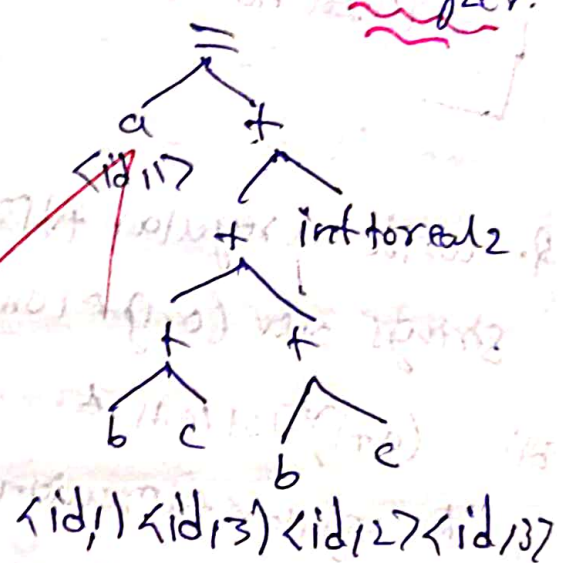 =
a +
<id,1>
+ inttoreal 2
+ +
b c b c
<id,1) <id,3) <id,2> <id,3>